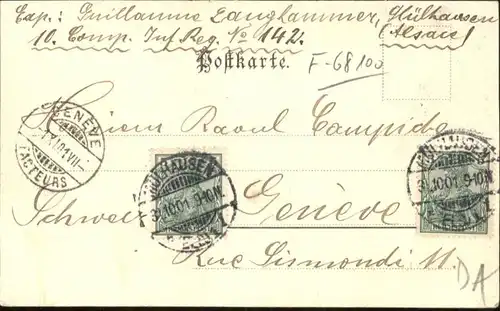 Exp.: Guillaume Langhammer, Mülhausen
10. Comp. Inf. Reg. No 142. (Alsace)
Postkarte.
F-68100
Herrn Raoul Campiche
GENÈVE
FACTEURS
MÜLHAUSEN
31.10.01. 9-10N
MÜLHAUSEN
31.10.01. 9-10N
Schweiz. Genève.
Rue Sismondi 11.
DA